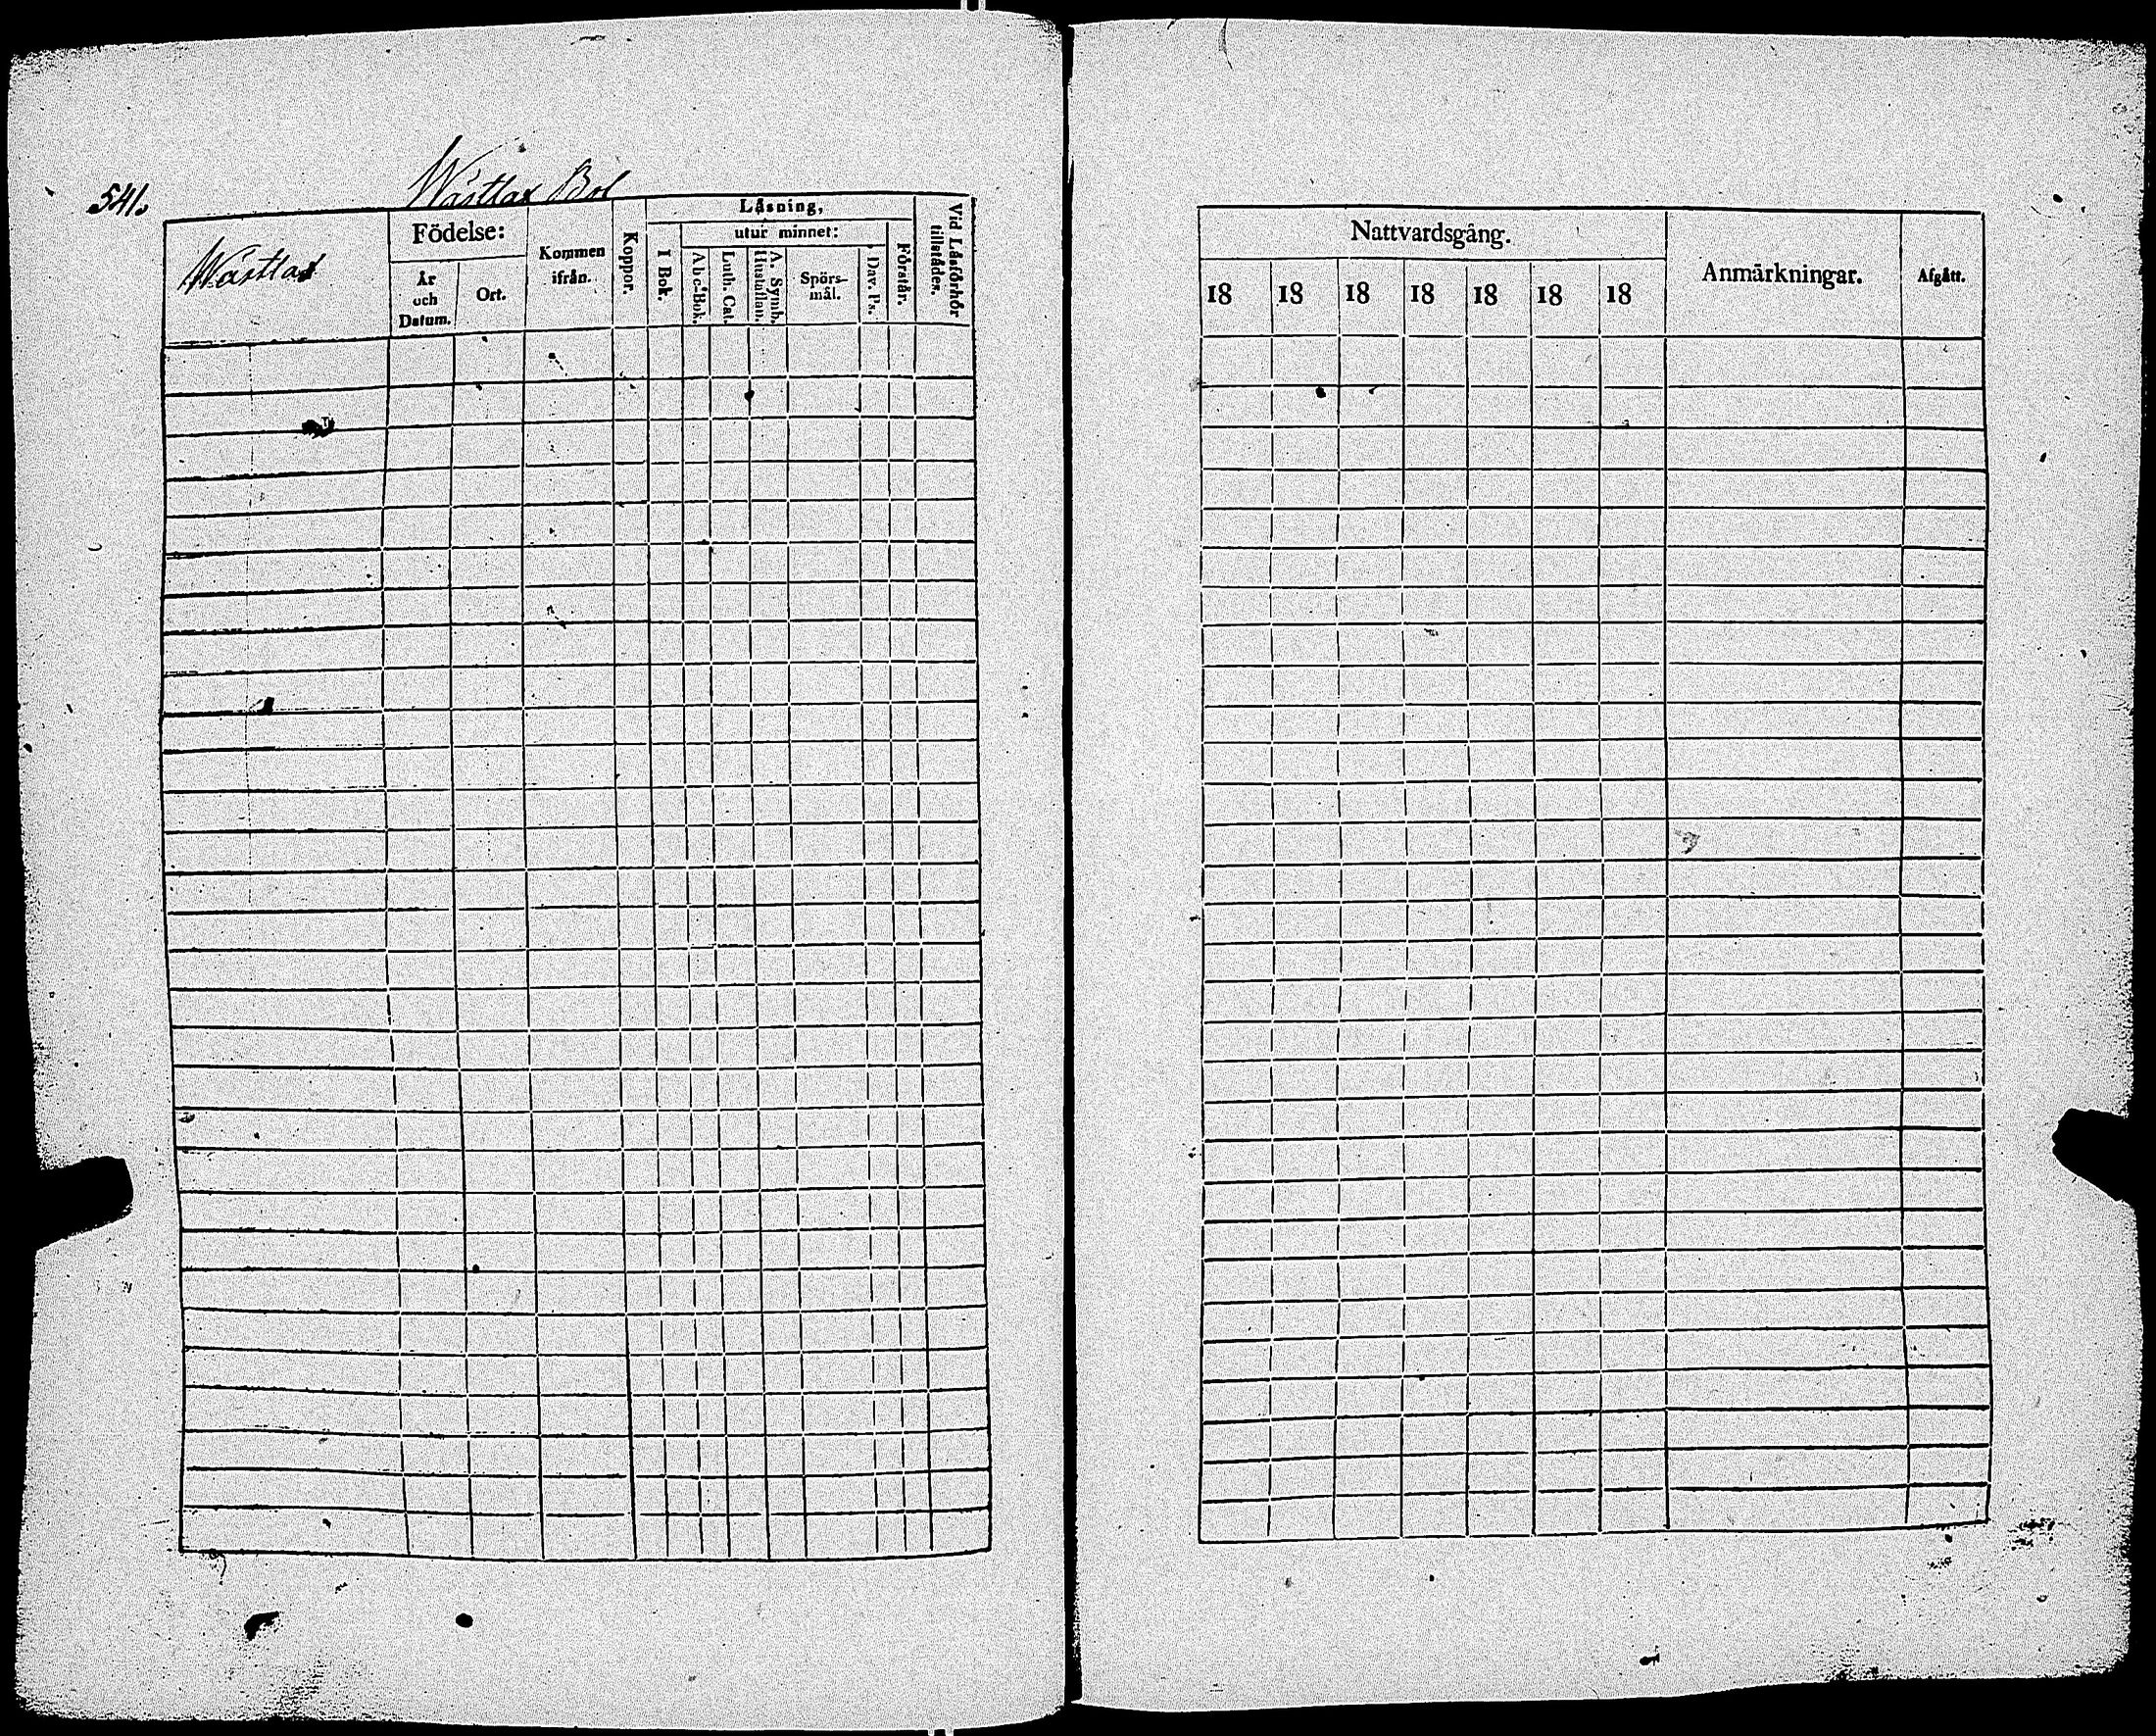 Wästlax Bol
541.
Wästlax
Födelse:
År
och
Datum.
Ort.
Kommen
ifrån.
Koppor.
Låsning,
utur minnet:
I Bok.
Abc-Bok.
Luth. Cat.
A. Symb.
Hustaflan.
Spörs-
mål.
Dav. Ps.
Förstår.
Vid Läsförhör
tillstädes.
Nattvardsgång.
18 18 18 18 18 18 18
Anmärkningar.
Afgått.